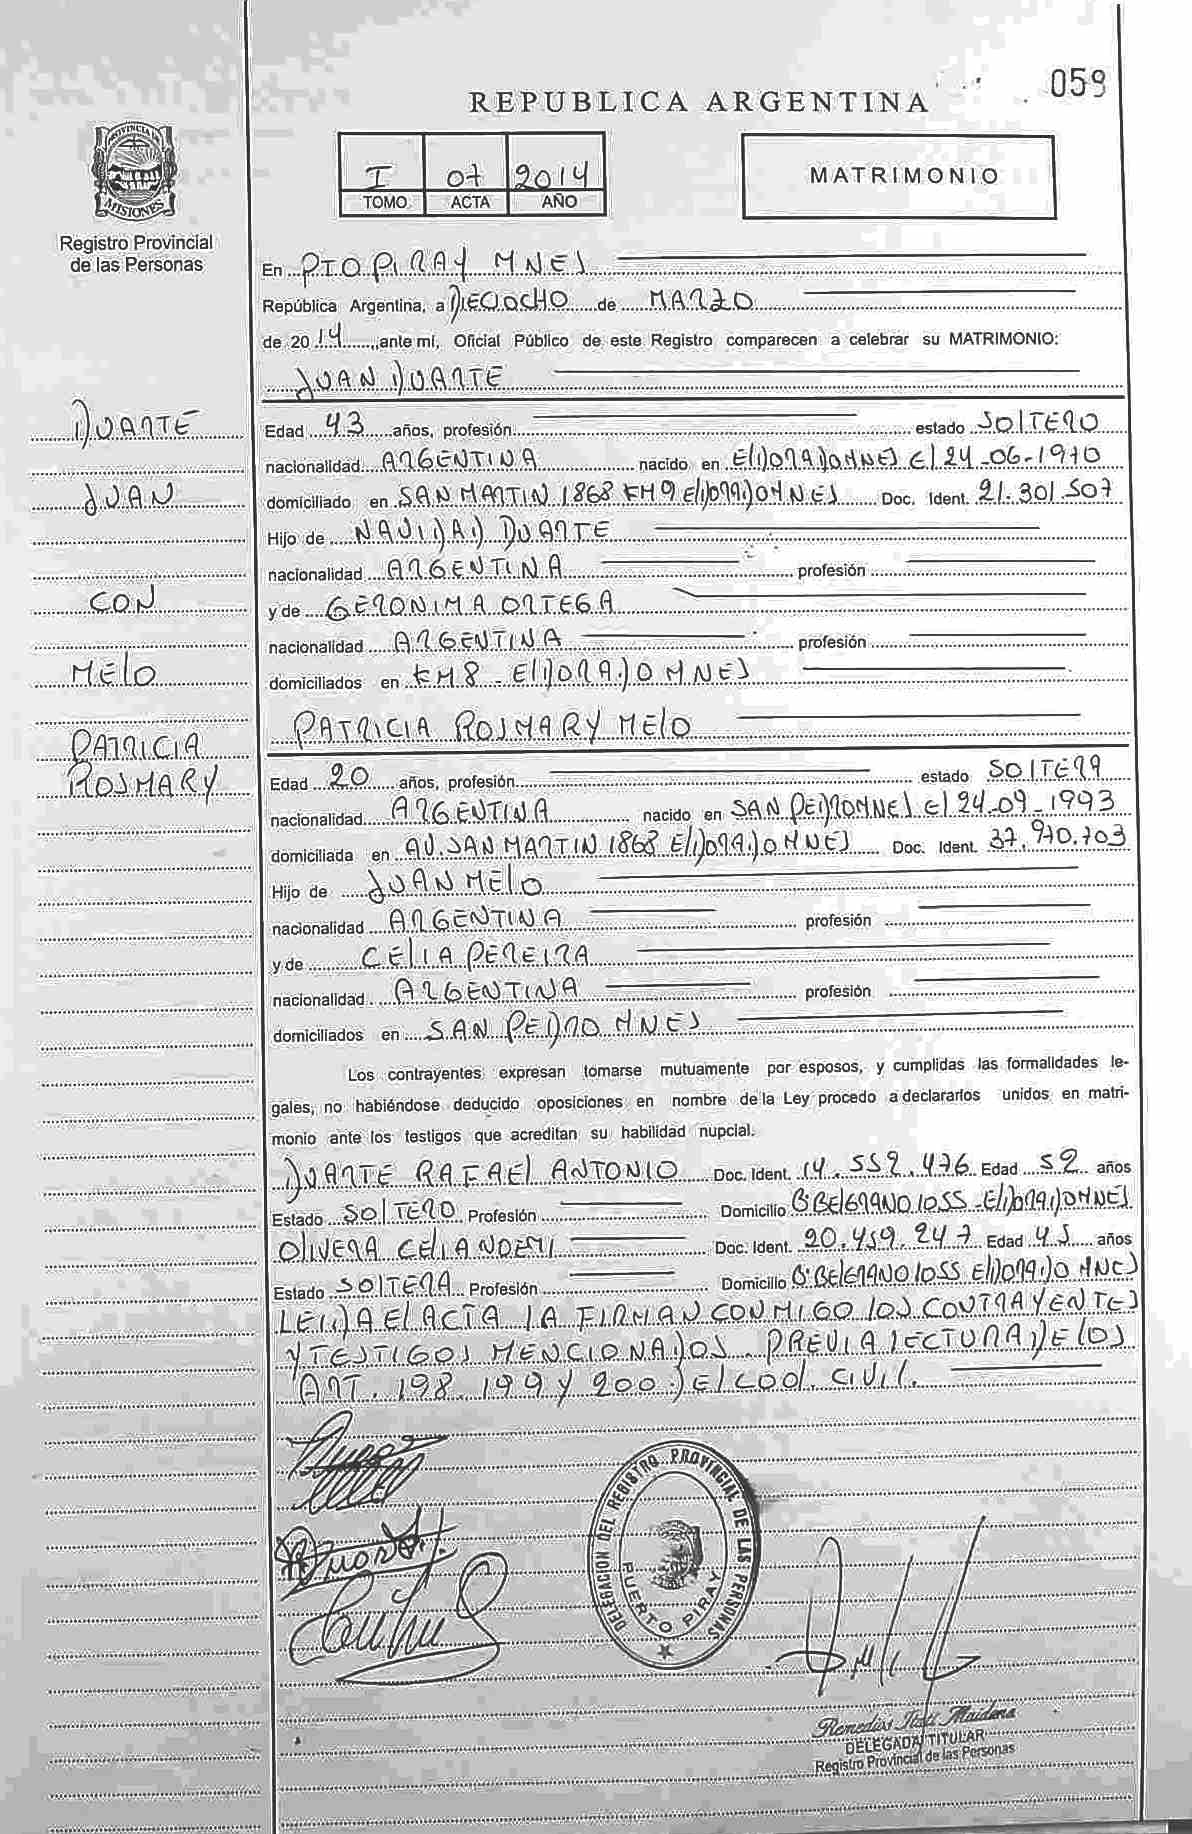 059
REPUBLICA ARGENTINA
PROVINCIA DE
MISIONES
Registro Provincial
de las Personas
I 07 2014
TOMO ACTA AÑO
MATRIMONIO
En PTO PIRAY MNES
República Argentina, a DIECIOCHO de MARZO
de 2014, ante mí, Oficial Público de este Registro comparecen a celebrar su MATRIMONIO:
JUAN DUARTE
DUARTE
JUAN
CON
MELO
PATRICIA
ROSMARY
Edad 43 años, profesión estado SOLTERO
nacionalidad ARGENTINA nacido en ELDORADO MNES El 24-06-1970
domiciliado en SAN MARTIN 1868 KM 9 ELDORADO MNES Doc. Ident. 21.301.507
Hijo de NAVIDAD DUARTE
nacionalidad ARGENTINA profesión
y de GERONIMA ORTEGA
nacionalidad ARGENTINA profesión
domiciliados en KM 8 - ELDORADO MNES
PATRICIA ROSMARY MELO
Edad 20 años, profesión estado SOLTERA
nacionalidad ARGENTINA nacido en SAN PEDRO MNES El 24-09-1993
domiciliada en AV. SAN MARTIN 1868 ELDORADO MNES Doc. Ident. 37.970.703
Hijo de JUAN MELO
nacionalidad ARGENTINA profesión
y de CELIA PEREIRA
nacionalidad ARGENTINA profesión
domiciliados en SAN PEDRO MNES
Los contrayentes expresan tomarse mutuamente por esposos, y cumplidas las formalidades le-
gales, no habiéndose deducido oposiciones en nombre de la Ley procedo a declararlos unidos en matri-
monio ante los testigos que acreditan su habilidad nupcial.
DUARTE RAFAEL ANTONIO Doc. Ident. 14.559.476 Edad 52 años
Estado SOLTERO Profesión Domicilio Bº BELGRANO 1055 - ELDORADO MNES
OLIVERA CELIA NOEMI Doc. Ident. 20.459.247 Edad 45 años
Estado SOLTERA Profesión Domicilio Bº BELGRANO 1055 ELDORADO MNES
LEIDA EL ACTA LA FIRMAN CONMIGO LOS CONTRAYENTES
Y TESTIGOS MENCIONADOS. PREVIA LECTURA DE LOS
ART. 198 199 Y 200 DEL COD. CIVIL.
DELEGACION DEL REGISTRO PROVINCIAL DE LAS PERSONAS
PUERTO PIRAY
Remedios Itatí Maidana
DELEGADA TITULAR
Registro Provincial de las Personas